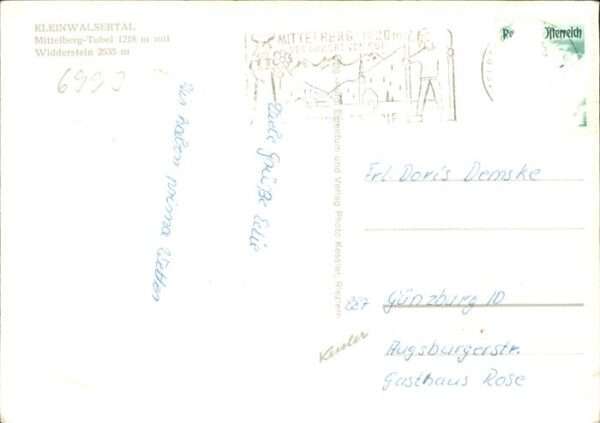 KLEINWALSERTAL
Mittelberg-Tobel 1218 m mit
Widderstein 2535 m
6993
MITTELBERG 1220 m
Österreich
Wir haben prima Wetter
Viele Grüße Edie
Eigentum und Verlag Photo Kessler, Riezlern
Frl Doris Demske
887 Günzburg 10
Kessler
Augsburgerstr.
Gasthaus Rose